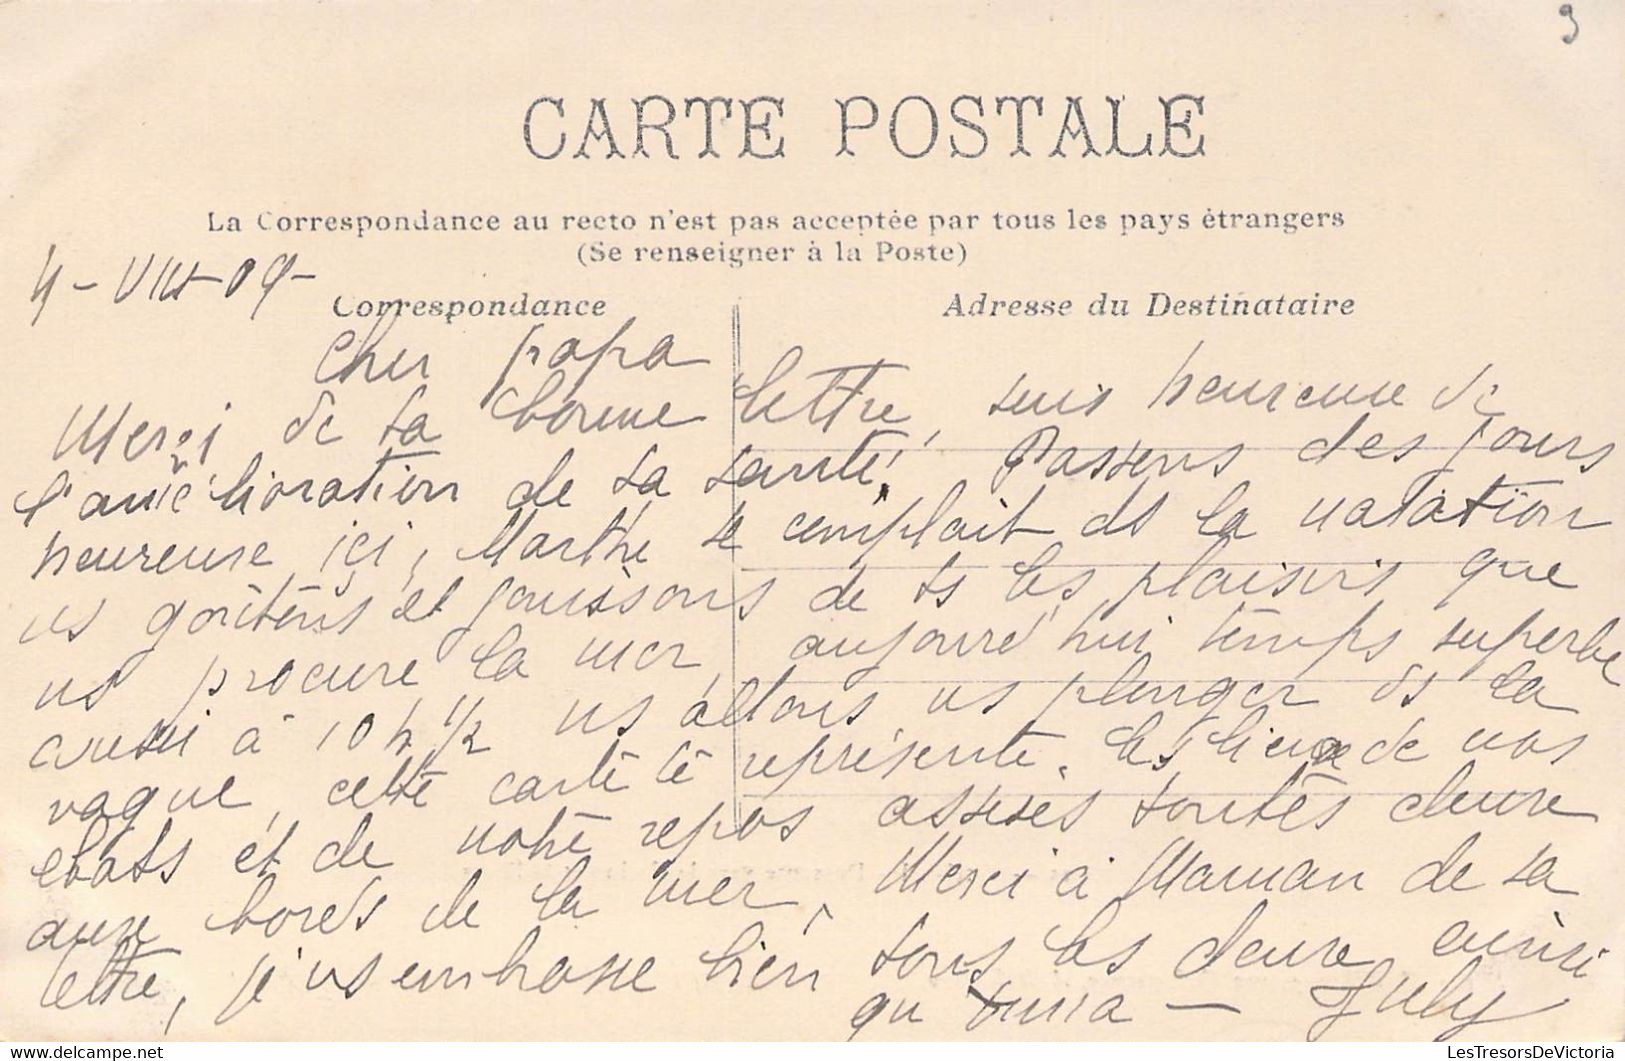 9
CARTE POSTALE
La Correspondance au recto n'est pas acceptée par tous les pays étrangers
(Se renseigner à la Poste)
4 - VIII - 09 -
Correspondance
Adresse du Destinataire
Cher papa
Merci de ta bonne lettre, suis heureuse de
l'amélioration de ta santé. Passons des jours
heureuse ici, Marthe se complait ds la natation
ns goûtons et jouissons de ts les plaisirs que
ns procure la mer, aujourd'hui temps superbe
aussi à 10 h 1/2 ns allons ns plonger ds la
vague, cette carte te représente les lieux de nos
ébats et de notre repos assises toutes deux
aux bords de la mer. Merci à Maman de sa
lettre, je vs embrasse bien tous les deux ainsi
qu' — July
LesTresorsDeVictoria